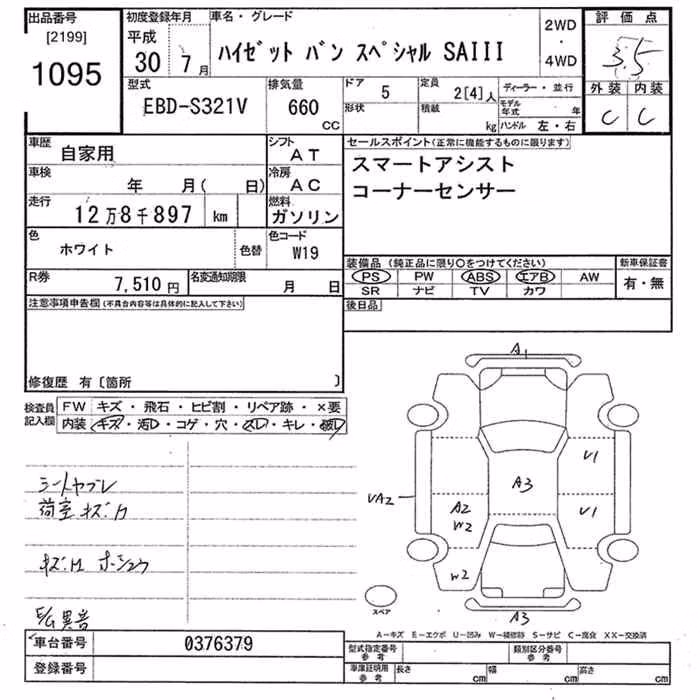 出品番号
[2199]
1095
初度登録年月
平成
30年 7月
車名・グレード
ハイゼット バン スペシャル SAIII
2WD
・
4WD
評価点
3.5
外装 内装
C C
型式
EBD-S321V
排気量
660
CC
ドア
5
形状
定員
2[4]人
積載
kg
ディーラー・並行
モデル年式 年
ハンドル 左・右
車歴
自家用
シフト
AT
車検
年 月( 日)
冷房
AC
走行
12万8千897 km
燃料
ガソリン
色
ホワイト
色替
色コード
W19
R券
7,510円
名変通知期限
月 日
セールスポイント(正常に機能するものに限ります)
スマートアシスト
コーナーセンサー
装備品 (純正品に限り○をつけてください)
PS PW ABS エアB AW
SR ナビ TV カワ
新車保証書
有・無
後日品
注意事項申告欄(不具合内容等は具体的に記入して下さい)
修復歴 有〔箇所 〕
検査員
記入欄
FW キズ・飛石・ヒビ割・リペア跡・×要
内装 キズ・汚レ・コゲ・穴・スレ・キレ・破レ
シートヤブレ
荷室キズ
異音
A1
V1
A3
VA2
A2
W2
V1
W2
A3
スペア
A-キズ E-エクボ U-凹み W-補修跡 S-サビ C-腐食 XX-交換済
車台番号
0376379
登録番号
型式指定番号
参考
類別区分番号
参考
車庫証明用
参考
長さ cm
幅 cm
高さ cm